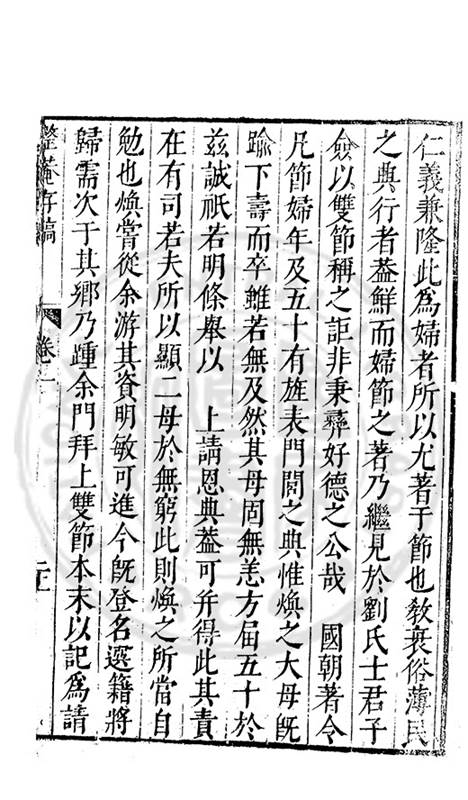 仁義兼隆此為婦者所以尤著于節也敎衰俗薄民
之典行者葢鮮而婦節之著乃繼見於劉氏士君子
僉以雙節稱之詎非秉彞好德之公哉　國朝著令
凡節婦年及五十有旌表門閭之典惟煥之大母既
踰下壽而卒雖若無及然其母固無恙方屆五十於
茲誠祇若明條舉以　上請恩典葢可并得此其責
在有司若夫所以顯二母於無窮此則煥之所當自
勉也煥嘗從余游其資明敏可進今既登名選籍將
歸需次于其鄉乃踵余門拜上雙節本末以記為請
整菴存稿　卷一